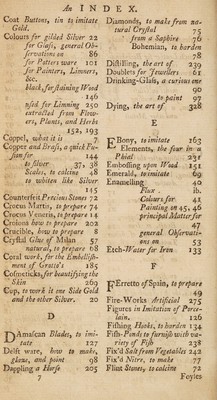 An INDEX.
Coat Buttons, tin to imitate
Gold.
Colours for gilded Silver 22
for Glass, general Ob-
servations on 86
for Potters ware 101
for Painters, Limners,
&c.
black, for staining Wood
146
used for Limning 250
extracted from Flow-
ers, Plants, and Herbs
152, 193
Coppel, what it is
Copper and Brass, a quick
for 144
to Silver 37, 38
Scales, to calcine 48
to whiten like Silver
145
Counterfeit Precious Stones 72
Crocus Martis, to prepare 74
Crocus Veneris, to prepare 14
Crotons how to prepare 202
Crucible, how to prepare 8
Crystal Glue of Milan 57
natural, to prepare 68
Coral work, for the Embellish-
ment of Grotto's 185
Cosmeticks, for beautifying the
Skin 269
Cup, to work it one Side Gold
and the other Silver. 20
D
DAmascan Blades, to imi-
tate 127
Delft ware, how to make,
glaze, and point 98
Dappling a Horse 205
7
Diamonds, to make from na-
tural Crystal 75
from a Saphire 76
Bohemian, to harden
78
Distilling, the art of 239
Doublets for Jewellers 61
Drinking-Glass, a curious one
90
to paint 97
Dying, the art of 328
E
EBony, to imitate 163
Elements, the four in a
Phial 231
Embossing upon Wood 151
Emerald, to imitate 69
Enamelling 40
Flux ib.
Colours for 41
Painting on 45, 46
principal Matter for
47
general Observati-
ons on 53
Etch-Water for Iron 133
F
FErretto of Spain, to prepare
49
Fire-Works Artificial 275
Figures in Imitation of Porce-
lain. 126
Fishing Hooks, to harden 134
Fish-Ponds to furnish with va-
riety of Fish 238
Fix'd Salt from Vegetables 242
Fix'd Nitre, to make 77
Flint Stones, to calcine 72
Foyles